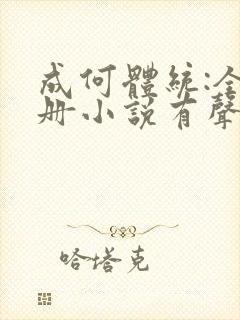 成何體統:全
册小說有聲
哈塔克